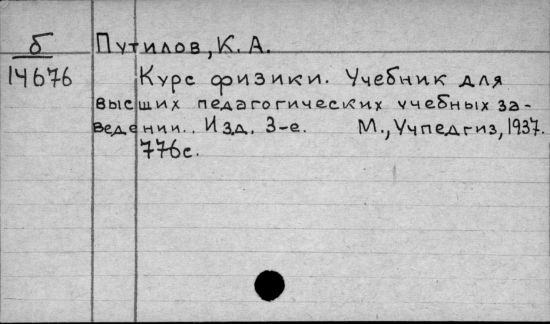 б Путилов, К. А.
14676 Курс физики. Учебник для
высших педагогических учебных за-
ведении.. Изд. 3-е. М., Учпедгиз, 1937.
776с.